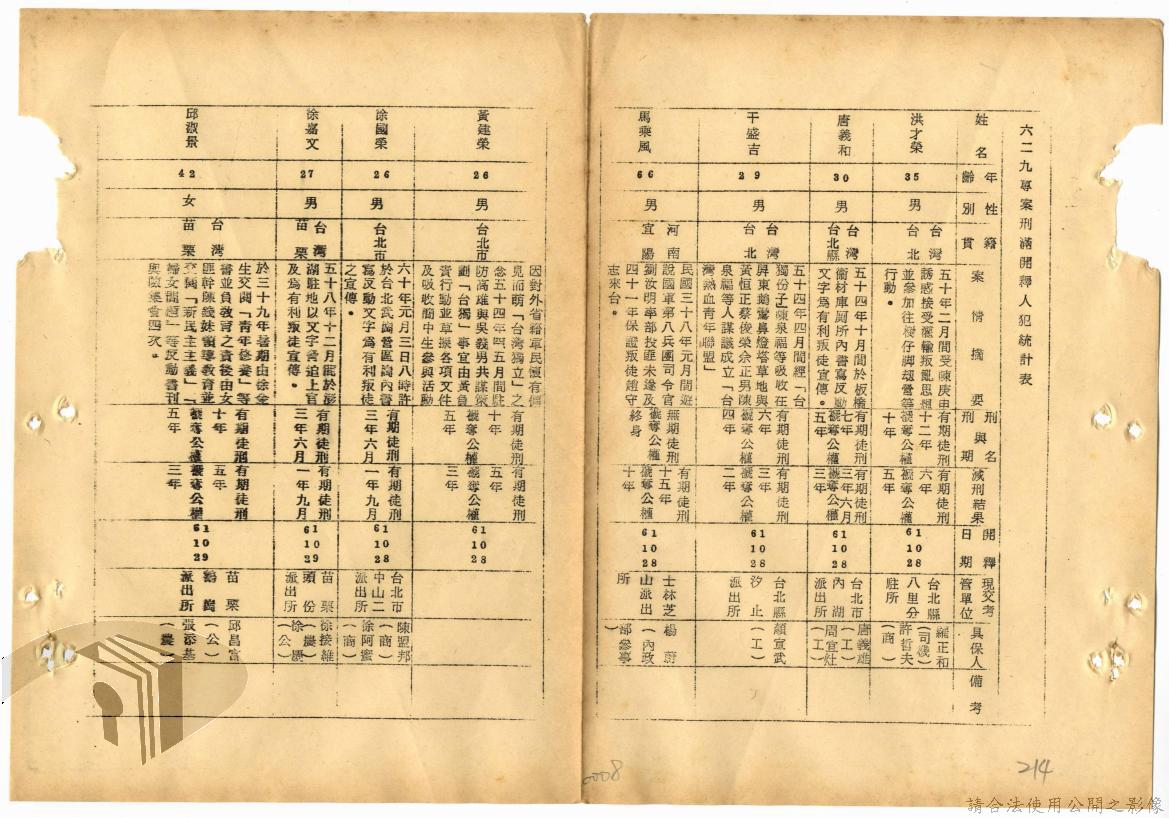 六二九專案刑滿開釋人犯統計表
姓名
年齡
性別
籍貫
案情摘要
刑名與刑期
減刑結果
開釋日期
現交考管單位
具保人
備考
洪才榮
35
男
台灣台北
五十年二月間受陳庚由
誘惑接受灌輸叛亂思想
並參加往梘仔脚刼營等
行動。
有期徒刑
十二年
褫奪公權
十年
有期徒刑
六年
褫奪公權
五年
61
10
28
台北縣
八里分
駐所
羅正和
許哲夫
(商)
唐義和
30
男
台灣
台北縣
五十四年十月間於板橋
衞材庫厠所內書寫反動
文字爲有利叛徒宣傳。
有期徒刑
七年
褫奪公權
五年
有期徒刑
三年六月
褫奪公權
三年
61
10
28
台北市
內湖
派出所
唐義雄
(工)
周宜灶
(工)
干盛吉
29
男
台灣台北
五十四年四月間經「台
獨份子」陳泉福等吸收在
屛東鵝鸞鼻燈塔草地與
黃恒正蔡俊榮余正男陳
泉福等人謀議成立「台
灣熱血青年聯盟」
有期徒刑
六年
褫奪公權
四年
有期徒刑
三年
褫奪公權
二年
61
10
28
台北縣
汐止
派出所
顏宜武
(工)
馬乘風
66
男
河南宜陽
民國三十八年元月間遊
說國軍第八兵團司令官
劉汝明率部投匪未遂及
四十一年保證叛徒趙守
志來台。
無期徒刑
褫奪公權
終身
有期徒刑
十五年
褫奪公權
十年
61
10
28
士林芝
山派出
所
楊蔚
(內政
部參事
)
黃建榮
26
男
台北市
因對外省籍軍民懷有偏
見而萌「台灣獨立」之
念五十四年四五月間駐
防高雄與吳義男共謀策
劃「台獨」事宜由黃負
責行動並草擬各項文件
及吸收簡中生參與活動
有期徒刑
十年
褫奪公權
五年
有期徒刑
五年
褫奪公權
三年
61
10
28
徐國榮
26
男
台北市
六十年元月三日八時許
於台北武崗營區崗內書
寫反動文字爲有利叛徒
之宣傳。
有期徒刑
三年六月
有期徒刑
一年九月
61
10
28
台北市
中山二
派出所
陳盟邦
(商)
徐阿蜜
(商)
徐嘉文
27
男
台灣
苗栗
五十八年十二月間於澎
湖駐地以文字書追上官
及爲有利叛徒宣傳。
有期徒刑
三年六月
有期徒刑
一年九月
61
10
29
苗栗
頭份
派出所
徐接維
(農)
邱淑景
42
女
台灣
苗栗
於三十九年暑期由徐金
生交閱「青年修養」等
書並負教育之責後由女
匪幹陳綫妹領導教育並
交閱「新民主主義」「
婦女問題」等反動書刊
與險集會四次。
有期徒刑
十年
褫奪公權
五年
有期徒刑
五年
褫奪公權
三年
61
10
29
苗栗
鶴岡
派出所
邱昌富
(公)
張添基
(農)
0008
214
請合法使用公開之影像